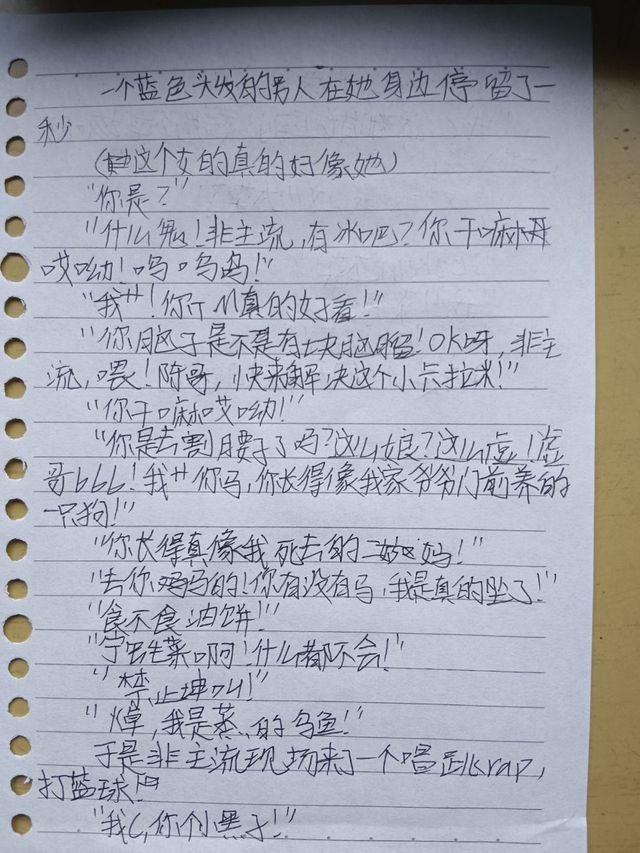 一个蓝色头发的男人在她身边停留了一
秒
(这个女的真的好像她)
"你是?"
"什么鬼!非主流,有冰吧?你干嘛
哎呦!呜呜呜!"
"我艹!你真的好看!"
"你脑子是不是有块脑瘤!OK呀,非主
流,喂!陈哥,快来解决这个小卡拉米!"
"你干嘛哎呦!"
"你是去割腰子了吗?这么娘?这么虚!虚
哥bbb!我艹你马,你长得像我家爷爷门前养的
一只狗!"
"你长得真像我死去的二妈!"
"去你妈马的!你有没有马,我是真的坠了!"
"食不食油饼!"
"宁生菜啊!什么都不会!"
"禁止坤叫!"
"焯,我是蒸的乌鱼!"
于是非主流现场来了一个唱跳rap,
打蓝球!"
"我C,你个小黑子!"